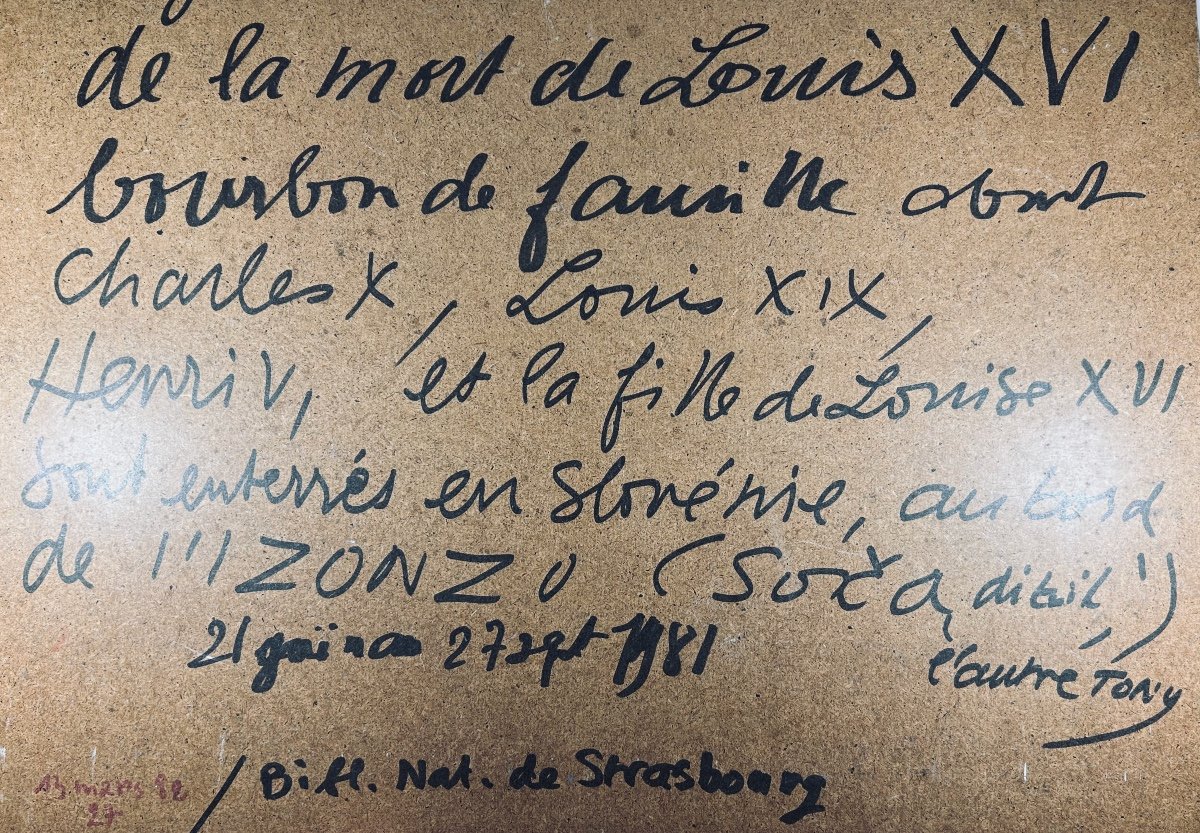 de la mort de Louis XVI
bourbon de famille dont
Charles X, Louis XIX,
Henri V, et la fille de Louise XVI
sont enterrés en Slovénie, au bord
de l'IZONZO (Soča, ditil')
l'autre Tony
21 27 sept 1981
/ Bibl. Nat. de Strasbourg
13 mars 82
27